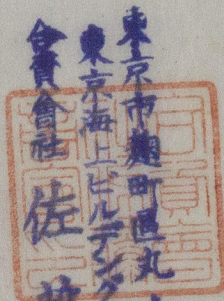 東京市麹町區丸
東京海上ビルデング
合資會社 佐